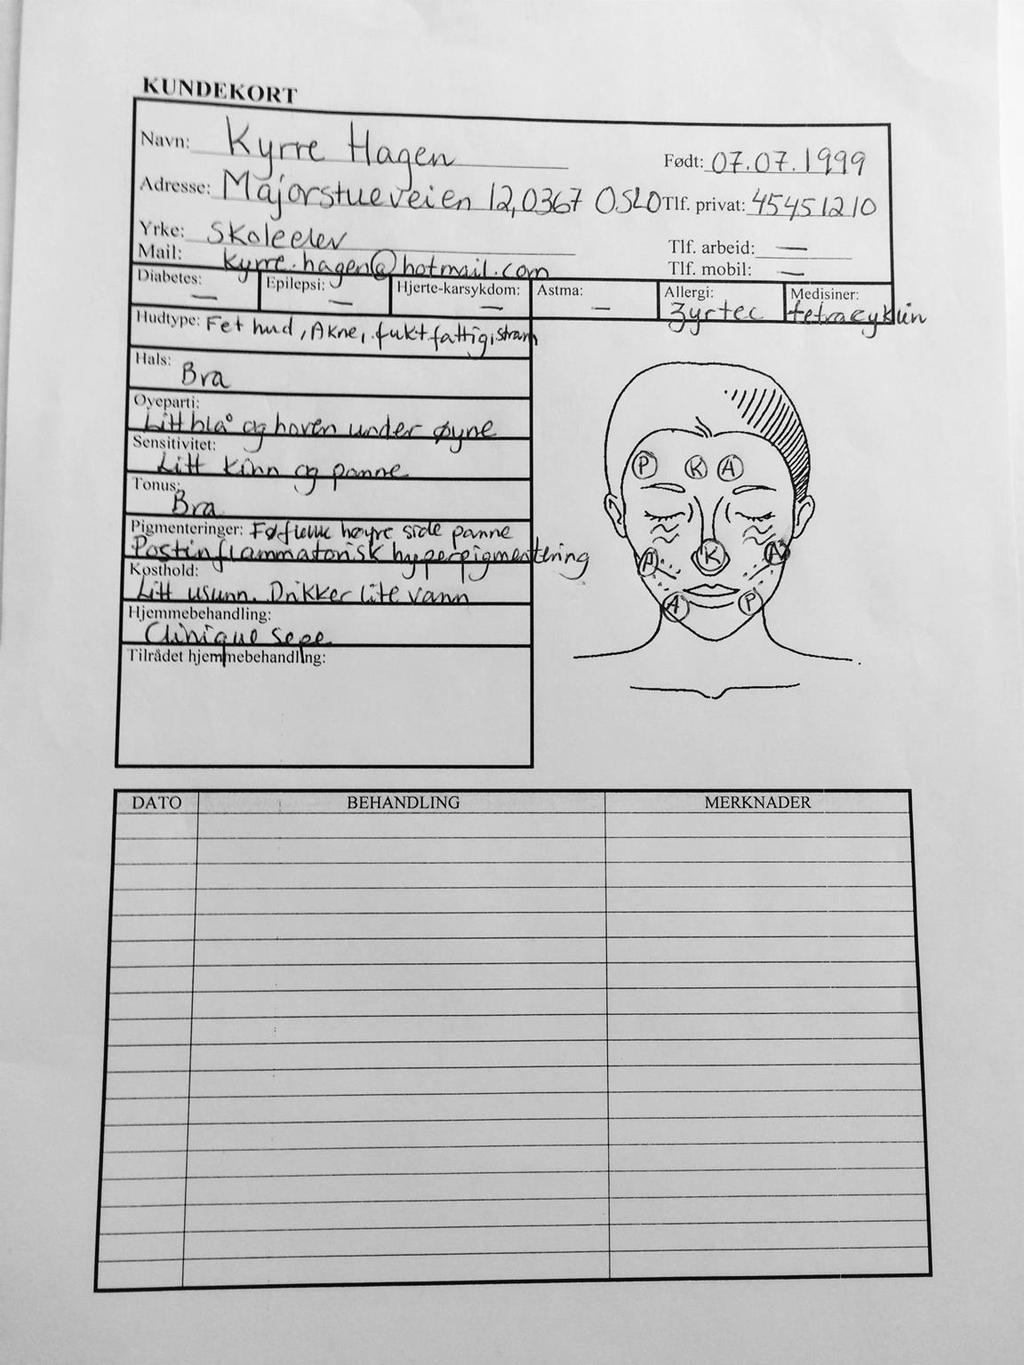 KUNDEKORT
Navn: Kyrre Hagen
Født: 07.07.1999
Adresse: Majorstueveien 12, 0367 OSLO Tlf. privat: 45451210
Yrke: Skoleelev
Tlf. arbeid: —
Mail: kyrre.hagen@hotmail.com
Tlf. mobil: —
Diabetes: — Epilepsi: — Hjerte-karsykdom: — Astma: — Allergi: Zyrtec Medisiner: tetracyklin
Hudtype: Fet hud, Akne, fuktfattig, stram
Hals: Bra
Øyeparti:
Litt blå og hoven under øyne
Sensitivitet:
Litt kinn og panne
Tonus:
Bra
Pigmenteringer: Føflekk høyre side panne
Postinflammatorisk hyperpigmentering
Kosthold:
Litt usunn. Drikker lite vann
Hjemmebehandling:
Clinique sepe
Tilrådet hjemmebehandling:
P K A
A K A
A P
DATO BEHANDLING MERKNADER